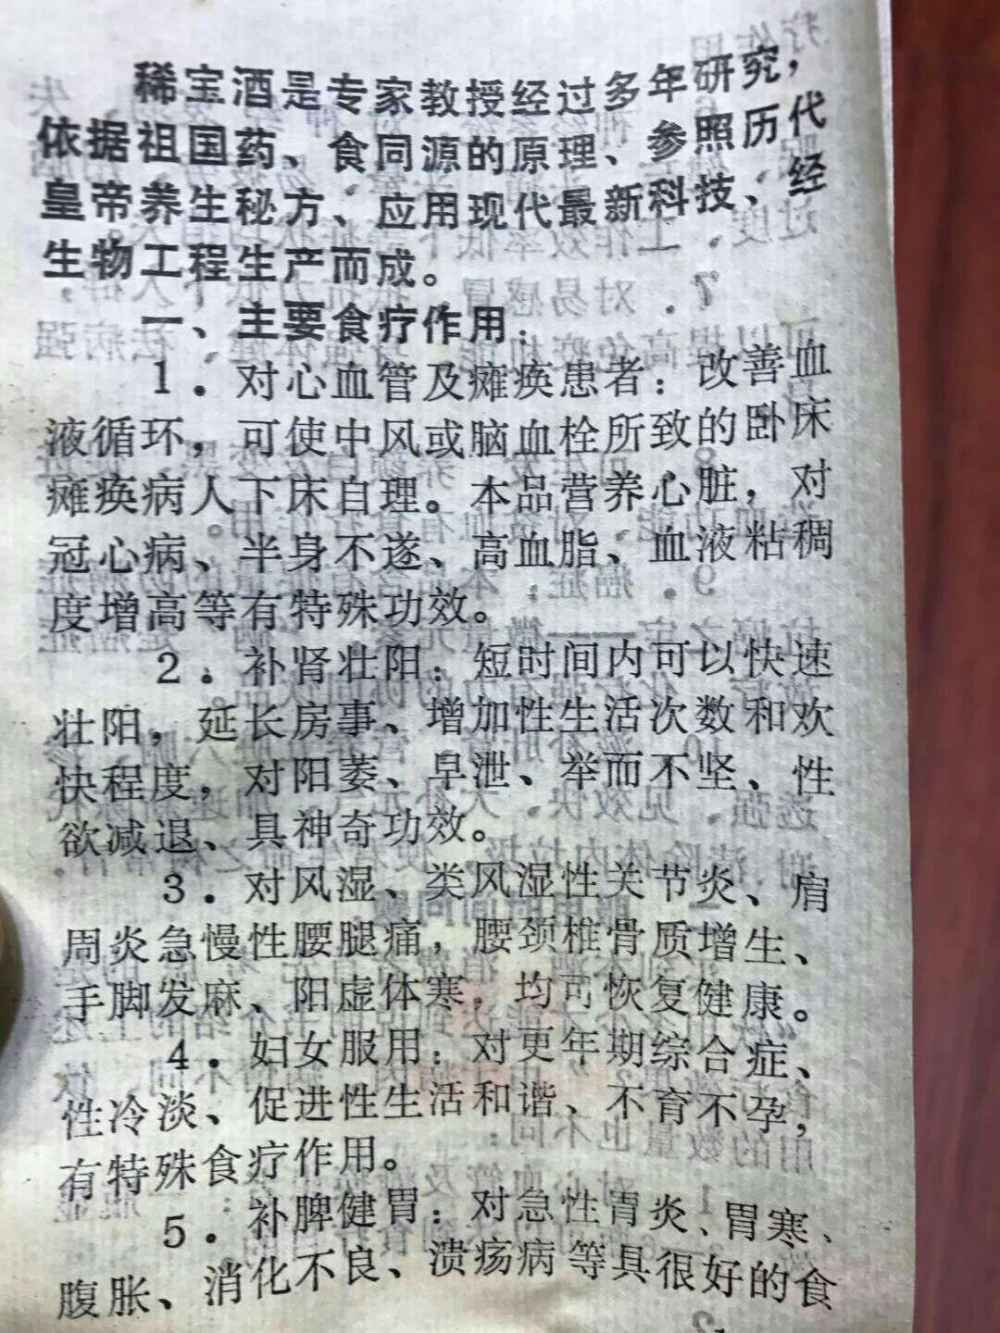 稀宝酒是专家教授经过多年研究，
依据祖国药、食同源的原理、参照历代
皇帝养生秘方、应用现代最新科技、经
生物工程生产而成。
一、主要食疗作用：
1．对心血管及瘫痪患者：改善血
液循环，可使中风或脑血栓所致的卧床
瘫痪病人下床自理。本品营养心脏，对
冠心病、半身不遂、高血脂、血液粘稠
度增高等有特殊功效。
2．补肾壮阳：短时间内可以快速
壮阳，延长房事、增加性生活次数和欢
快程度，对阳萎、早泄、举而不坚、性
欲减退、具神奇功效。
3．对风湿、类风湿性关节炎、肩
周炎急慢性腰腿痛，腰颈椎骨质增生、
手脚发麻、阳虚体寒，均可恢复健康。
4．妇女服用：对更年期综合症、
性冷淡、促进性生活和谐、不育不孕，
有特殊食疗作用。
5．补脾健胃：对急性胃炎、胃寒、
腹胀、消化不良、溃疡病等具很好的食